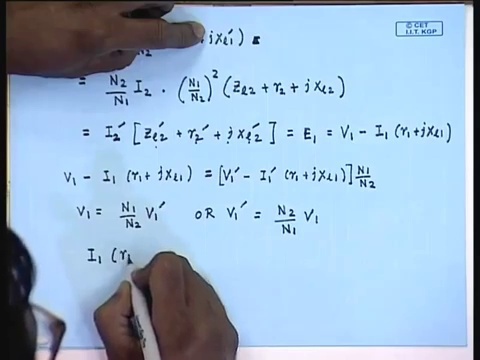 © CET
I.I.T. KGP
N2 jxl1′)
= N2/N1 I2 · (N1/N2)² (Zl2 + r2 + jxl2)
= I2′ [Zl2′ + r2′ + jxl2′] = E1 = V1 - I1 (r1 + jxl1)
V1 - I1 (r1 + jxl1) = [V1′ - I1′ (r1 + jxl1)] N1/N2
V1 = N1/N2 V1′ OR V1′ = N2/N1 V1
I1 (r1